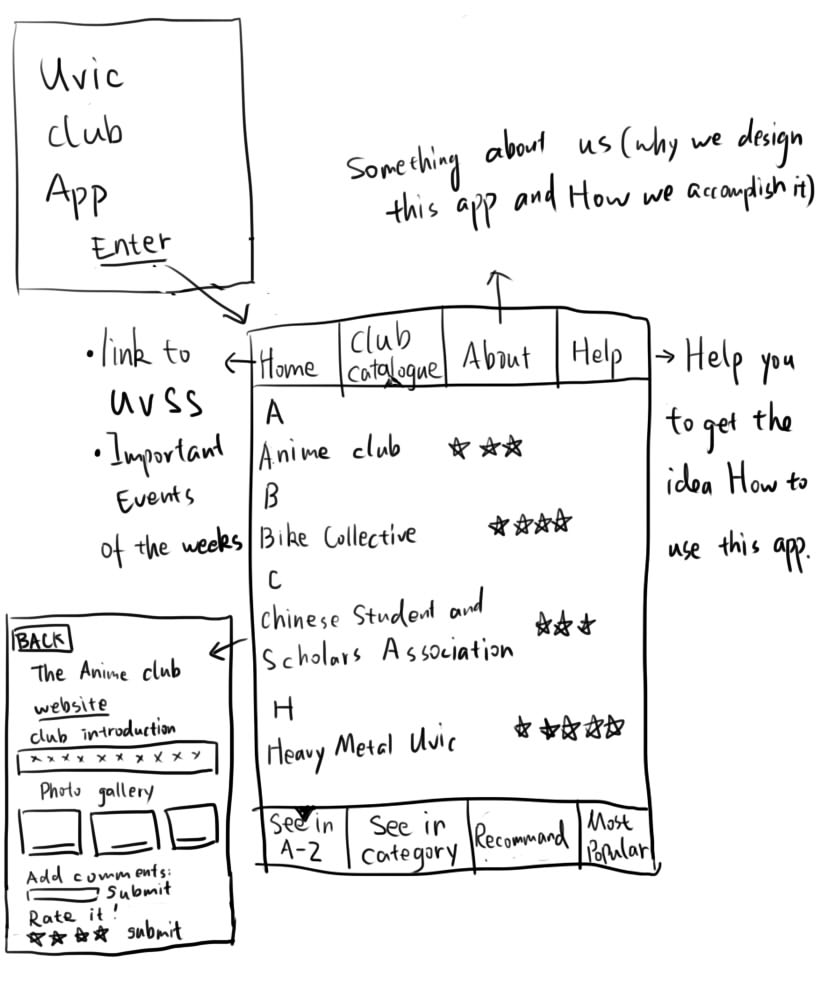 Uvic
club
App
Enter
Something about us (why we design
this app and How we accomplish it)
• link to
UVSS
• Important
Events
of the weeks
Home
Club
catalogue
About
Help
Help you
to get the
idea How to
use this app.
A
Anime club
B
Bike Collective
C
Chinese Student and
Scholars Association
H
Heavy Metal Uvic
See in
A-Z
See in
category
Recommand
Most
Popular
BACK
The Anime club
website
club introduction
x x x x x x x x x x
Photo gallery
Add comments:
Submit
Rate it!
submit